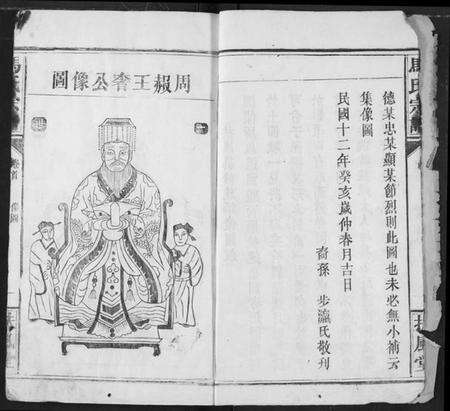 馬氏宗譜
德某忠某顯某節烈則此圖也未必無小補云
集像圖
民國十二年癸亥歲仲春月吉日
裔孫 步瀛氏敬刊
扶風堂
周赧王奢公像圖
卷首
像圖